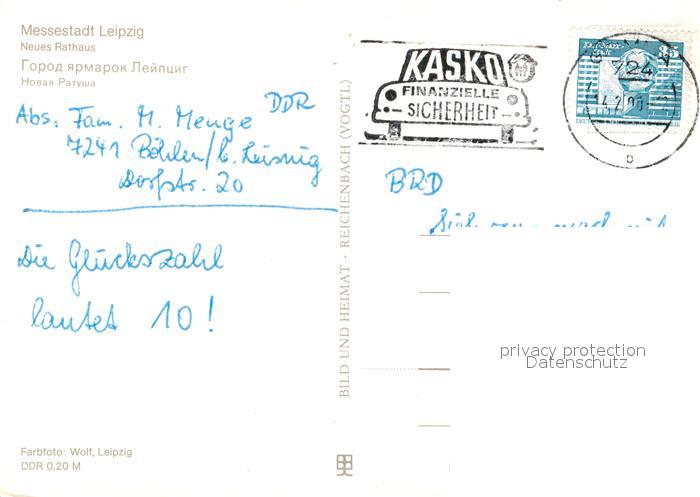 Messestadt Leipzig
Neues Rathaus
Город ярмарок Лейпциг
Новая Ратуша
Abs: Fam. M. Menge DDR
7241 Böhlen/b. Leisnig
Dorfstr. 20
Die Glückszahl
lautet 10!
Farbfoto: Wolf, Leipzig
DDR 0,20 M
BILD UND HEIMAT · REICHENBACH (VOGTL)
KASKO
FINANZIELLE
SICHERHEIT
Karl-Marx-
Stadt
35
724
14.2.90
b
BRD
privacy protection
Datenschutz